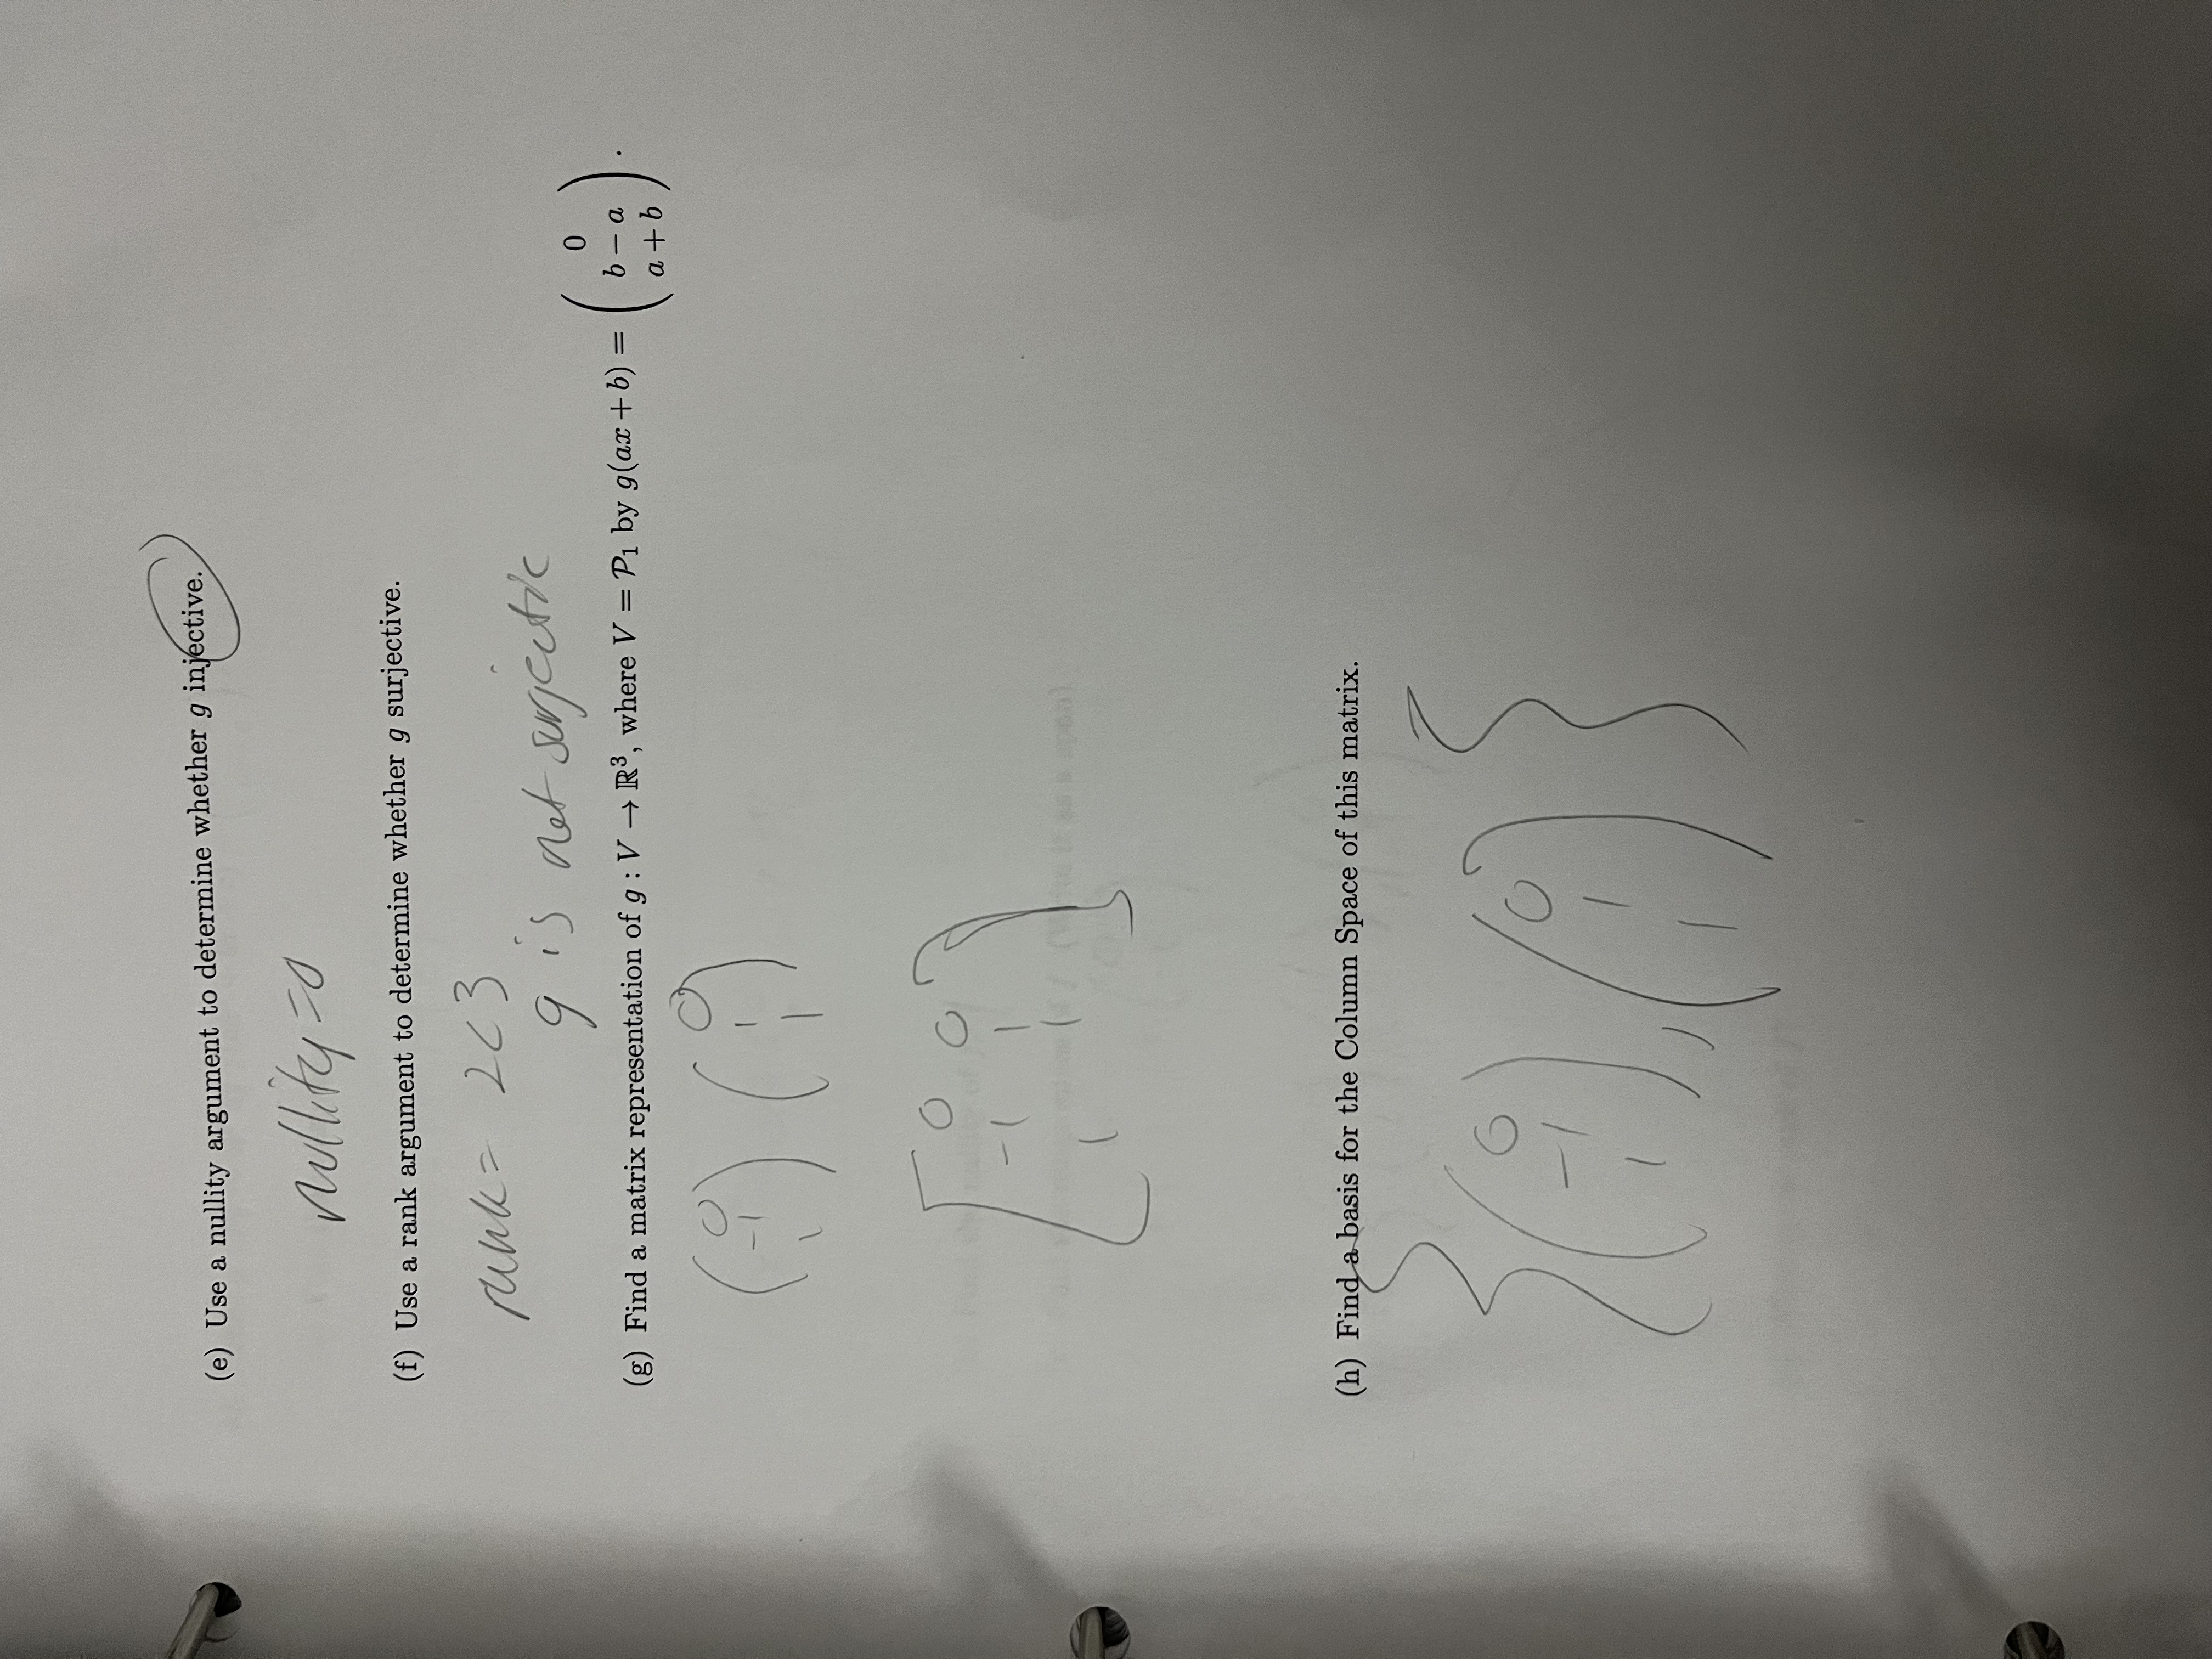 (e) Use a nullity argument to determine whether g injective.
nullity=0
(f) Use a rank argument to determine whether g surjective.
rank= 2<3
g is not surjectic
(g) Find a matrix representation of g : V → ℝ³, where V = 𝒫₁ by g(ax + b) = ( 0 b − a a + b ).
( 0 -1 1 ) ( 0 1 1 )
[ 0 0
-1 1
1 1 ]
(h) Find a basis for the Column Space of this matrix.
{ ( 0 -1 1 ) , ( 0 1 1 ) }